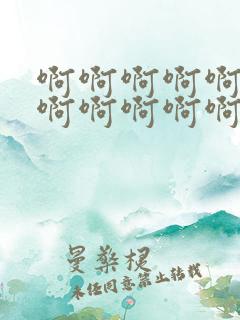 啊啊啊啊啊
啊啊啊啊啊
曼梗
未经同意禁止转载